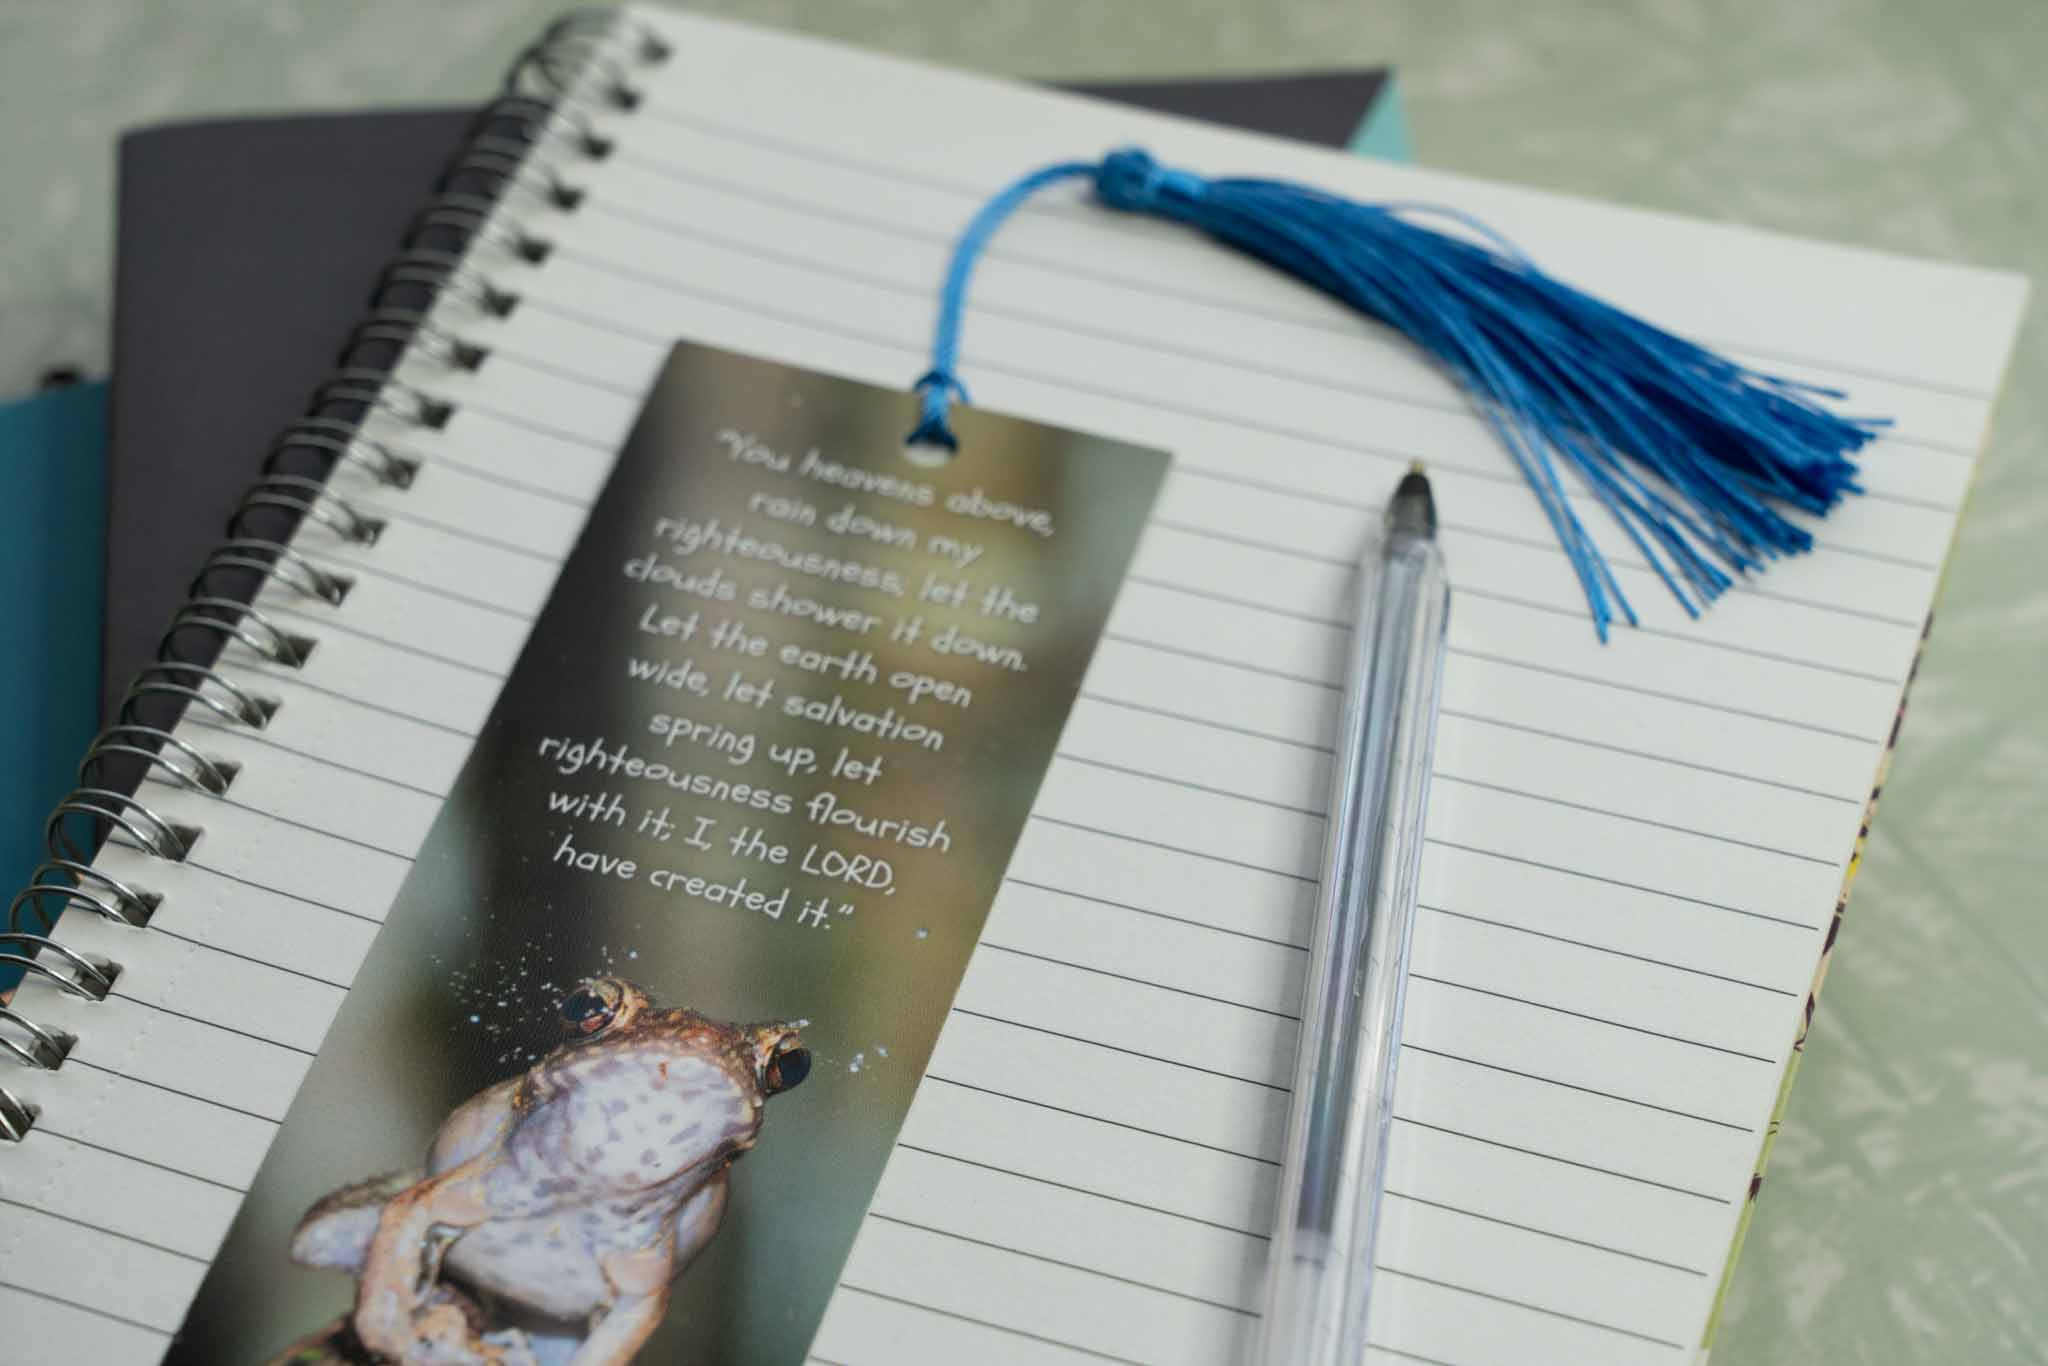 “You heavens above,
rain down my
righteousness, let the
clouds shower it down.
Let the earth open
wide, let salvation
spring up, let
righteousness flourish
with it; I, the LORD,
have created it.”